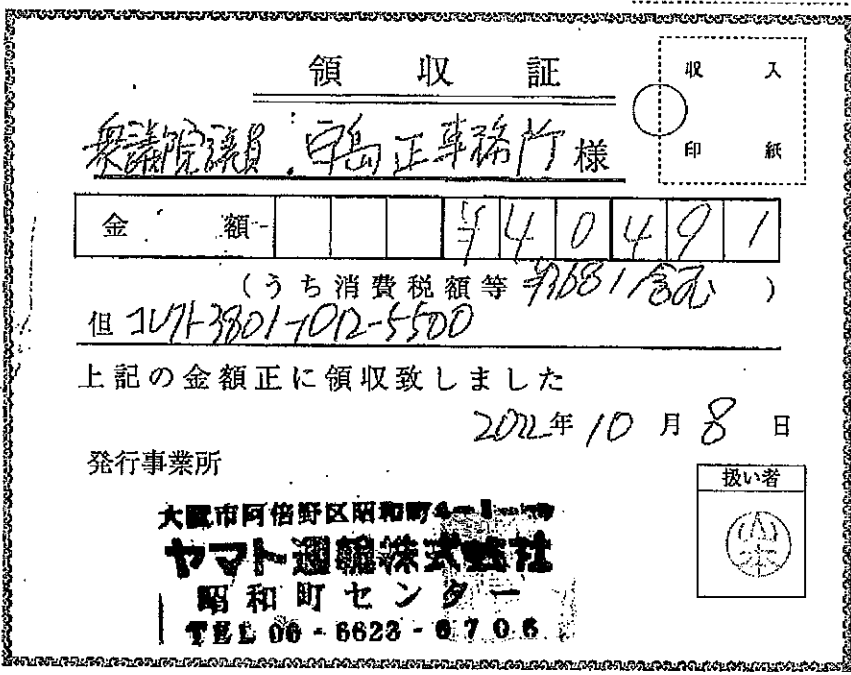 領収証
収入
印紙
衆議院議員 中島正事務所 様
金額 ¥40491
(うち消費税額等 ¥3681含む)
但 コレクト3801-1012-5500
上記の金額正に領収致しました
2022年10月8日
発行事業所
扱い者
山本
大阪市阿倍野区昭和町4-1-
ヤマト運輸株式会社
昭和町センター
TEL 06-6623-6706